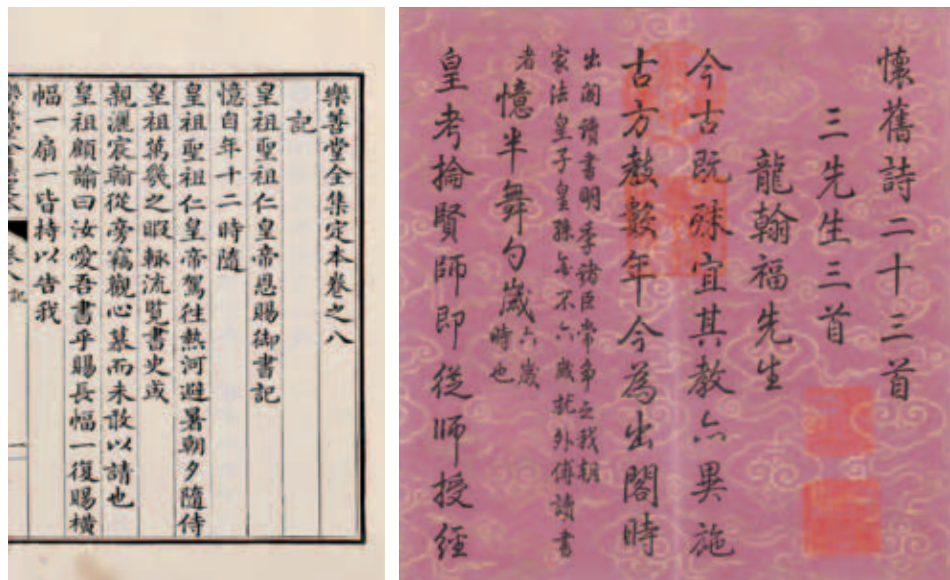 樂善堂全集定本卷之八
記
皇祖聖祖仁皇帝恩賜御書記
憶自年十二時隨
皇祖聖祖仁皇帝駕往熱河避暑朝夕隨侍
皇祖萬幾之暇輒流覽書史或
親灑宸翰從旁竊觀心慕而未敢以請也
皇祖顧諭曰汝愛吾書乎賜長幅一復賜橫
幅一扇一皆持以告我
懷舊詩二十三首
三先生三首
龍翰福先生
今古既殊宜其教亦異施
古方教數年今為出閣時
出閣讀書明季諸臣常爭之我朝
家法皇子皇孫無不六歲就外傅讀書
者憶半舞勺歲六歲時也
皇考掄賢師即從師授經